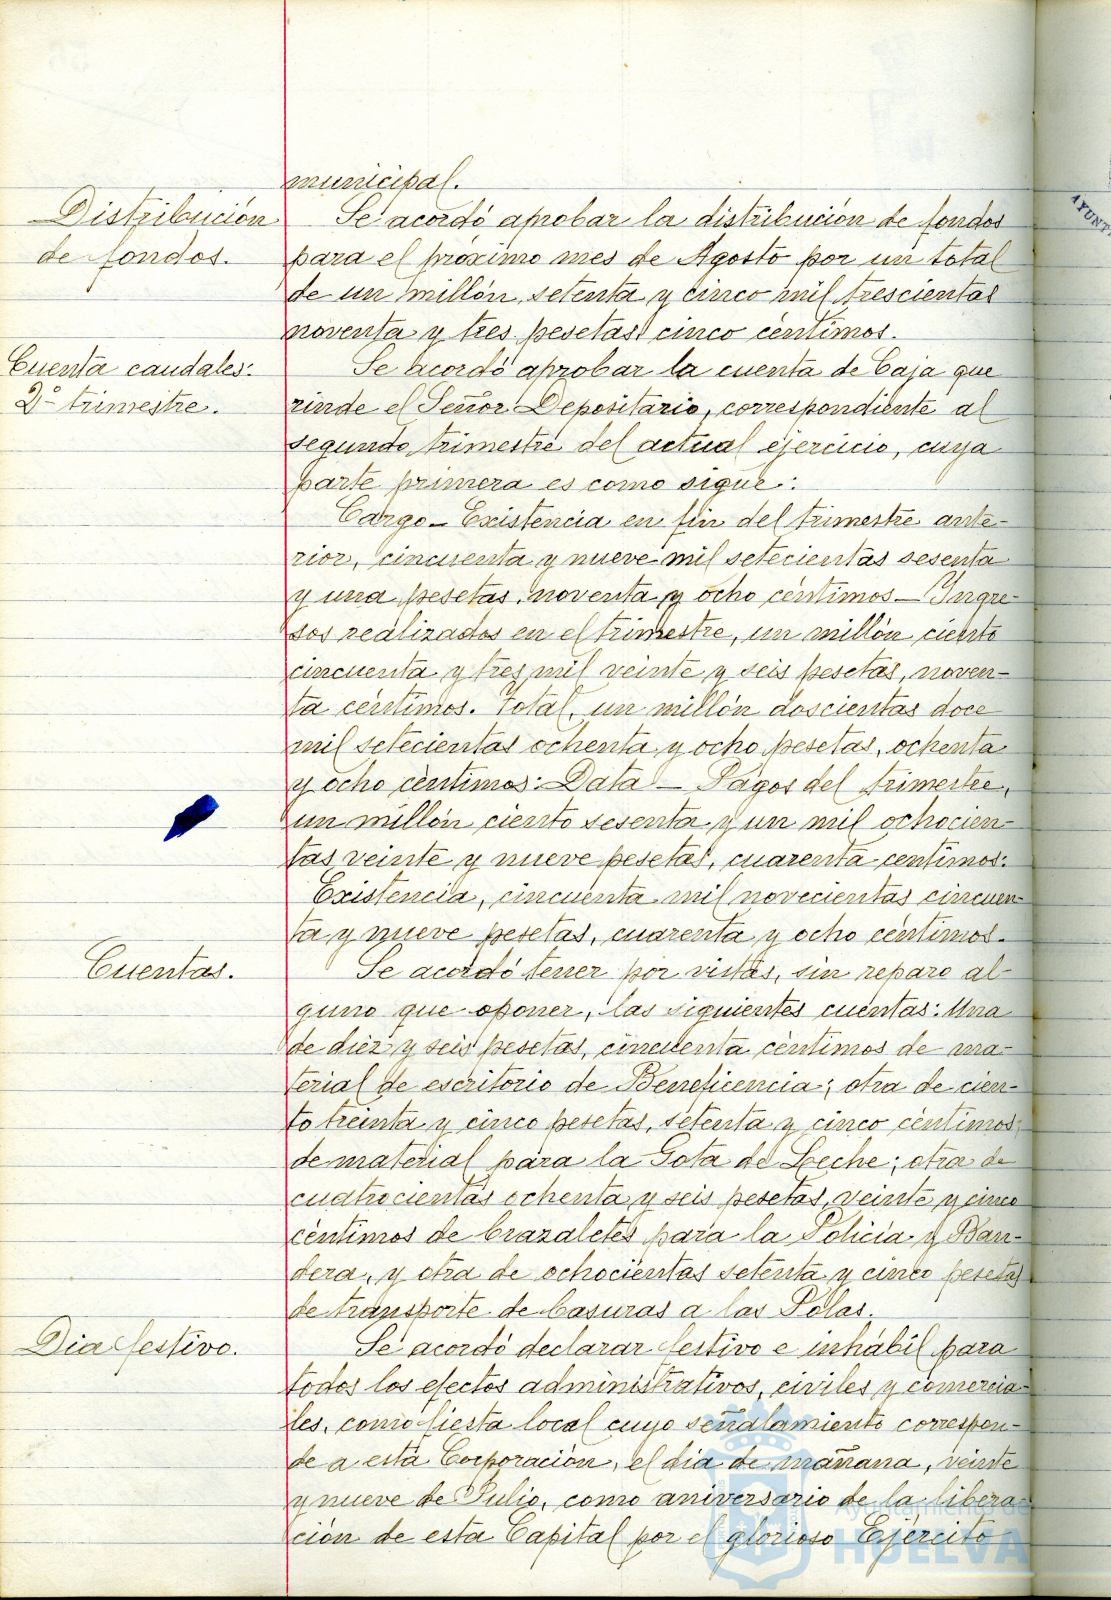 municipal.
Distribución
de fondos.
Se acordó aprobar la distribución de fondos
para el próximo mes de Agosto por un total
de un millón, setenta y cinco mil trescientas
noventa y tres pesetas cinco céntimos.
Cuenta caudales:
2º trimestre.
Se acordó aprobar la cuenta de Caja que
rinde el Señor Depositario, correspondiente al
segundo trimestre del actual ejercicio, cuya
parte primera es como sigue:
Cargo — Existencia en fin del trimestre ante-
rior, cincuenta y nueve mil setecientas sesenta
y una pesetas, noventa y ocho céntimos — Ingre-
sos realizados en el trimestre, un millón ciento
cincuenta y tres mil veinte y seis pesetas, noven-
ta céntimos. Total, un millón doscientas doce
mil setecientas ochenta y ocho pesetas, ochenta
y ocho céntimos: Data — Pagos del trimestre,
un millón ciento sesenta y un mil ochocien-
tas veinte y nueve pesetas, cuarenta centimos:
Existencia, cincuenta mil novecientas cincuen-
ta y nueve pesetas, cuarenta y ocho céntimos.
Cuentas.
Se acordó tener por vistas, sin reparo al-
guno que oponer, las siguientes cuentas: Una
de diez y seis pesetas, cincuenta céntimos de ma-
terial de escritorio de Beneficencia; otra de cien-
to treinta y cinco pesetas, setenta y cinco céntimos,
de material para la Gota de Leche; otra de
cuatrocientas ochenta y seis pesetas, veinte y cinco
céntimos de brazaletes para la Policía y Ban-
dera, y otra de ochocientas setenta y cinco pesetas
de transporte de basuras a las Polas.
Dia festivo.
Se acordó declarar festivo e inhábil para
todos los efectos administrativos, civiles y comercia-
les, como fiesta local cuyo señalamiento correspon-
de a esta Corporación, el dia de mañana, veinte
y nueve de Julio, como aniversario de la libera-
ción de esta Capital por el glorioso Ejército
AYUNT
Ayuntamiento de
HUELVA